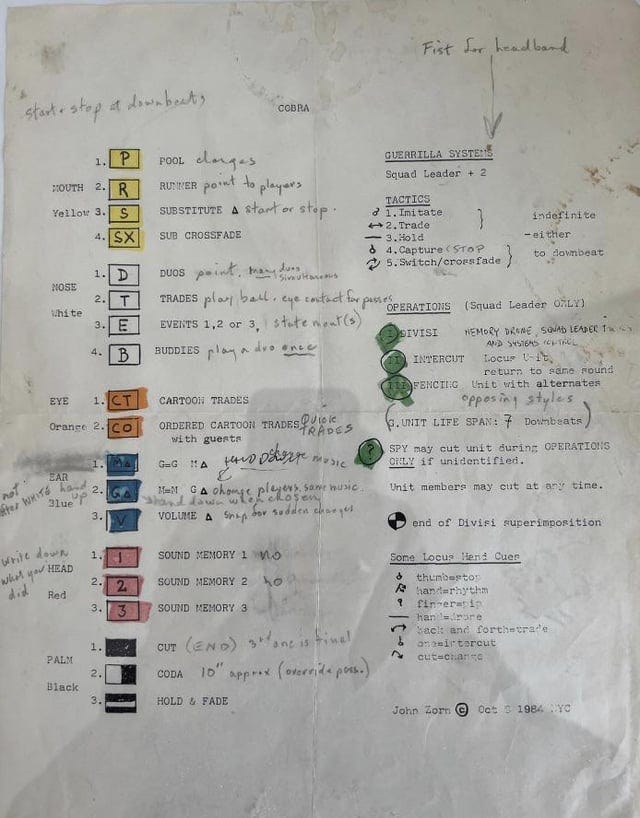 Fist for headband
start + stop at downbeats
COBRA
1. P POOL changes
MOUTH 2. R RUNNER point to players
Yellow 3. S SUBSTITUTE Δ start or stop.
4. SX SUB CROSSFADE
NOSE 1. D DUOS point, many duos simultaneous
White 2. T TRADES play ball, eye contact for passes
3. E EVENTS 1,2 or 3, statement(s)
4. B BUDDIES play a duo once
EYE 1. CT CARTOON TRADES
Orange 2. CO ORDERED CARTOON TRADES QUICK TRADES
with guests
EAR 1. MΔ G=G MΔ music
Blue 2. GΔ M=M GΔ change players, same music.
hand down when chosen
3. V VOLUME Δ snap for sudden changes
not after white hand up
write down what you did
HEAD 1. 1 SOUND MEMORY 1 no
Red 2. 2 SOUND MEMORY 2 no
3. 3 SOUND MEMORY 3
PALM 1. CUT (END) 3rd one is final
Black 2. CODA 10" approx (override poss.)
3. HOLD & FADE
GUERRILLA SYSTEMS
Squad Leader + 2
TACTICS
1. Imitate
2. Trade
indefinite
3. Hold
- either
4. Capture (STOP
5. Switch/crossfade
to downbeat
OPERATIONS (Squad Leader ONLY)
I DIVISI MEMORY DRONE, SQUAD LEADER
AND SYSTEMS CONTROL
II INTERCUT Locus Unit,
return to same sound
III FENCING Unit with alternates
opposing styles
UNIT LIFE SPAN: 7 Downbeats)
? SPY may cut unit during OPERATIONS
ONLY if unidentified.
Unit members may cut at any time.
end of Divisi superimposition
Some Locus Hand Cues
thumb=stop
hand=rhythm
finger=pip
hand=drone
back and forth=trade
one=intercut
cut=change
John Zorn © Oct 1984 NYC